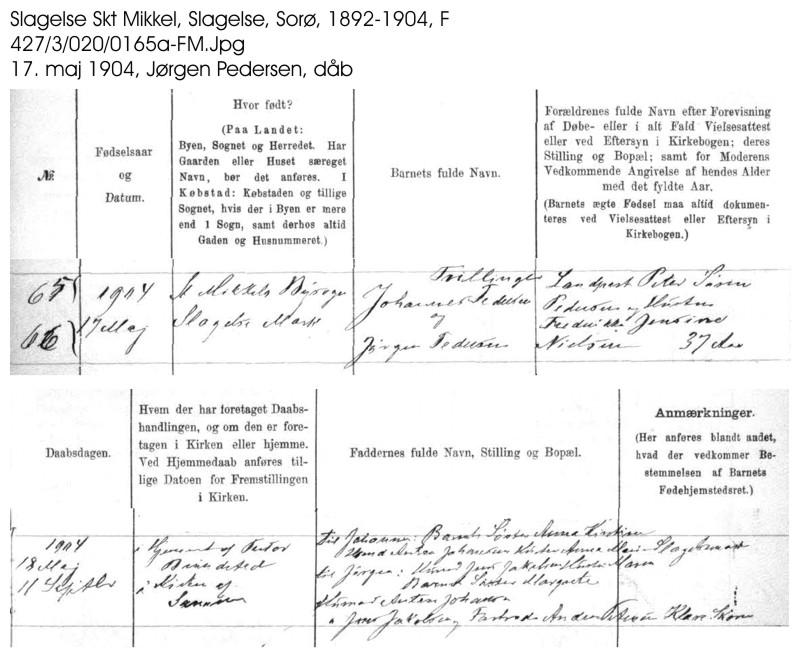 Slagelse Skt Mikkel, Slagelse, Sorø, 1892-1904, F
427/3/020/0165a-FM.Jpg
17. maj 1904, Jørgen Pedersen, dåb
№.
Fødselsaar
og
Datum.
Hvor født?
(Paa Landet:
Byen, Sognet og Herredet. Har
Gaarden eller Huset særeget
Navn, bør det anføres. I
Købstad: Købstaden og tillige
Sognet, hvis der i Byen er mere
end 1 Sogn, samt derhos altid
Gaden og Husnummeret.)
Barnets fulde Navn.
Forældrenes fulde Navn efter Forevisning
af Døbe- eller i alt Fald Vielsesattest
eller ved Eftersyn i Kirkebogen; deres
Stilling og Bopæl; samt for Moderens
Vedkommende Angivelse af hendes Alder
med det fyldte Aar.
(Barnets ægte Fødsel maa altid dokumen-
teres ved Vielsesattest eller Eftersyn i
Kirkebogen.)
65
66
1904
17 Maj
St Mikkels
Slagelse Mark
Trillinger
Johannes Pedersen
og
Jørgen Pedersen
Landpost Peter Søren
Pedersen og Hustru
Frederikke Jensine
Nielsen 37 Aar
Daabsdagen.
Hvem der har foretaget Daabs-
handlingen, og om den er fore-
tagen i Kirken eller hjemme.
Ved Hjemmedaab anføres til-
lige Datoen for Fremstillingen
i Kirken.
Faddernes fulde Navn, Stilling og Bopæl.
Anmærkninger.
(Her anføres blandt andet,
hvad der vedkommer Be-
stemmelsen af Barnets
Fødehjemstedsret.)
1904
18 Maj
11 Septbr
i Hjemmet af Pastor
i Kirken af
Samme
til Johannes: Barnets Søster Anna Kirstine
Anton Johansen Anna Marie Slagelse Mark
til Jørgen: Jens Jakobsen Hustru Maren
Barnets Søster Margrete
Anton Johansen
Jens Jakobsen og Anders